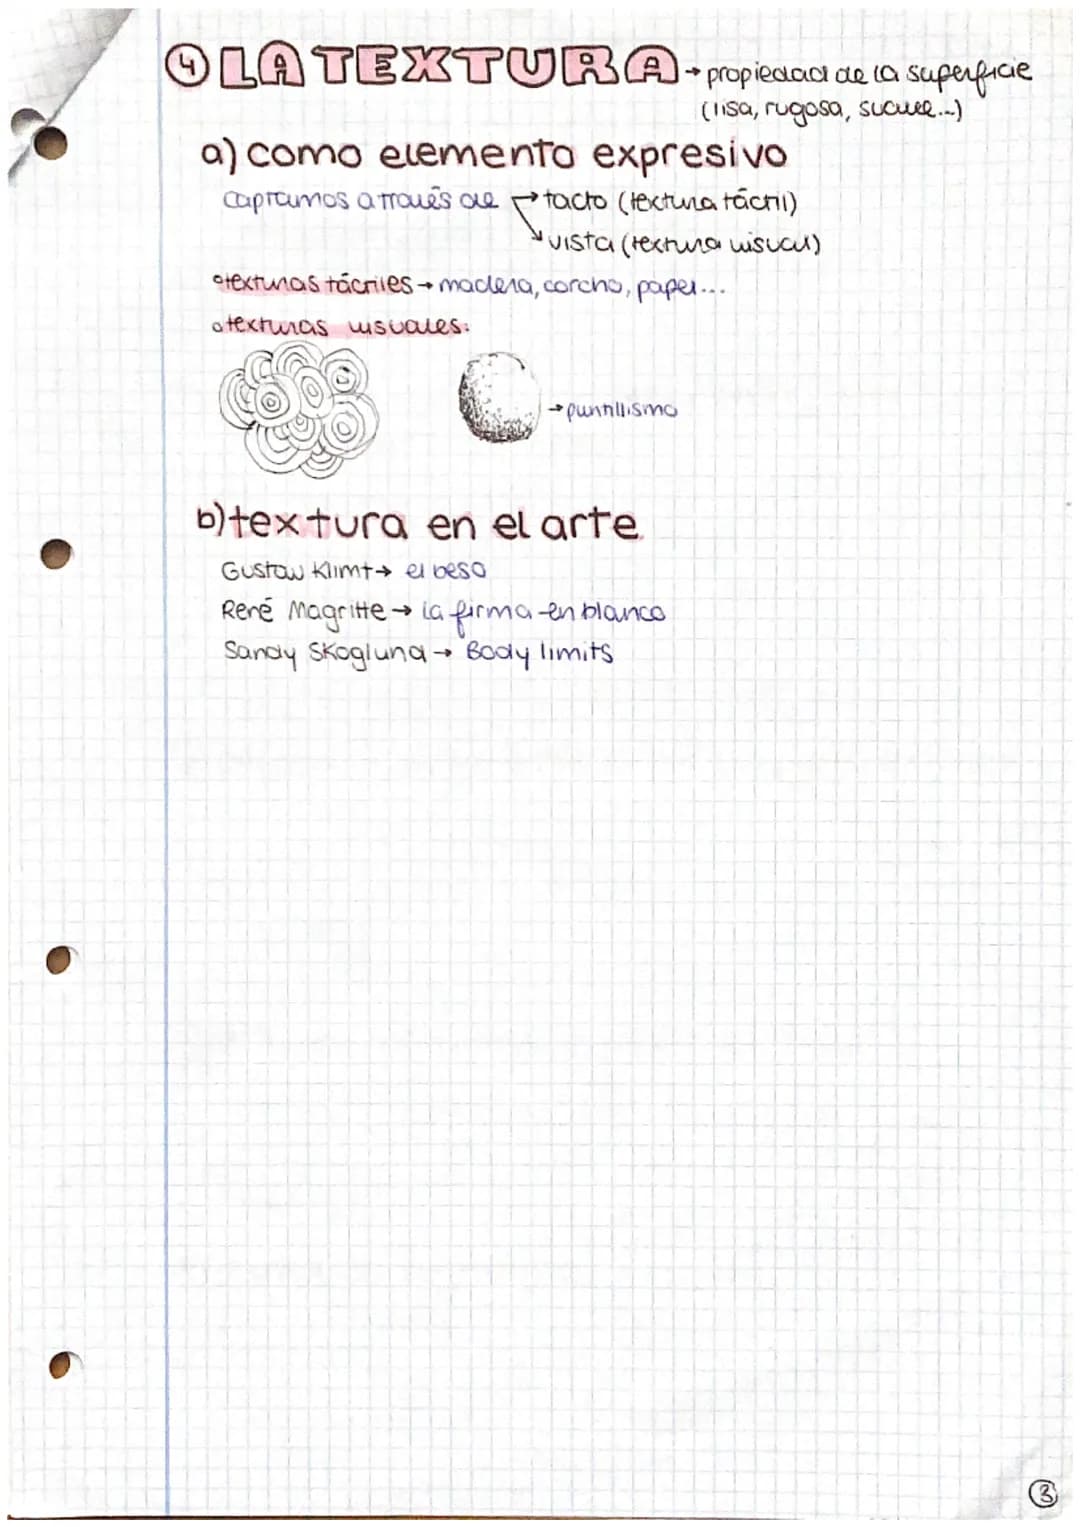 ④ LA TEXTURA → propiedad de la superficie
(lisa, rugosa, suave...)
a) como elemento expresivo
captamos a través de → tacto (textura táctil)
↘ vista (textura visual)
texturas táctiles → madera, corcho, papel...
texturas visuales:
→ puntillismo
b) textura en el arte
Gustav Klimt → el beso
René Magritte → la firma en blanco
Sandy Skoglund → Body limits
③